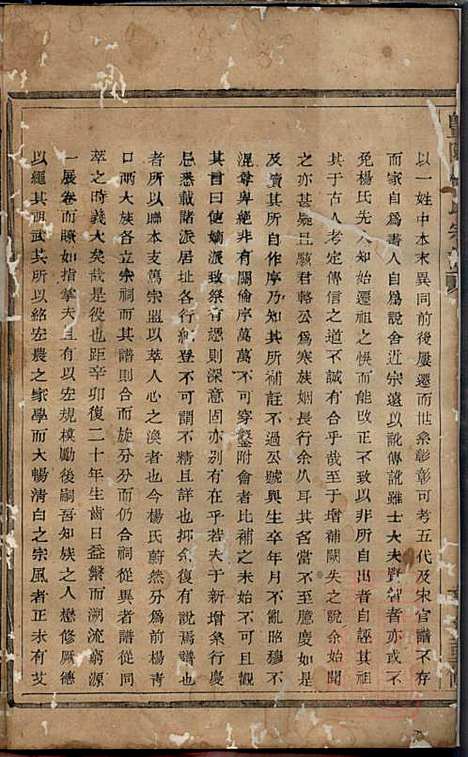 以一姓中本末異同前後屢遷而世系彰彰可考五代及宋官譜不存
而家自爲書人自爲說舍近宗遠以訛傳訛雖士大夫賢智者亦或不
免楊氏先人知始遷祖之悞而能改正不致以非所自出者自誣其祖
其于古人考定傳信之道不誠有合乎哉至于增補闕失之說余始聞
之亦甚疑且駭君輅公爲寒族姻長行余久耳其名當不至臆度如是
及讀其所自作序乃知其所補註不過公號與生卒年月不亂昭穆不
混尊卑絕非有關倫序萬萬不可穿鑿附會者比補之未始不可且觀
其言曰使嫡派致祭有憑則深意固亦別有在乎若夫新增葵行慶
忌悉載賭派居址各行統登不可謂不精且詳也抑余復有說焉譜也
者所以聯本支篤宗盟以萃人心之渙者也今楊氏蔚然分爲前楊青
口兩大族各立宗祠而其譜則合而旋分分而仍合祠從異者譜從同
萃之時義大矣哉是役也距辛卯復二十年生齒日益繁而溯流窮源
一展卷而瞭如指掌夫且有以宏規模勵後嗣吾知族之人懋修厥德
以繩其祖武其所以紹宏農之家學而大暢清白之宗風者正未有艾